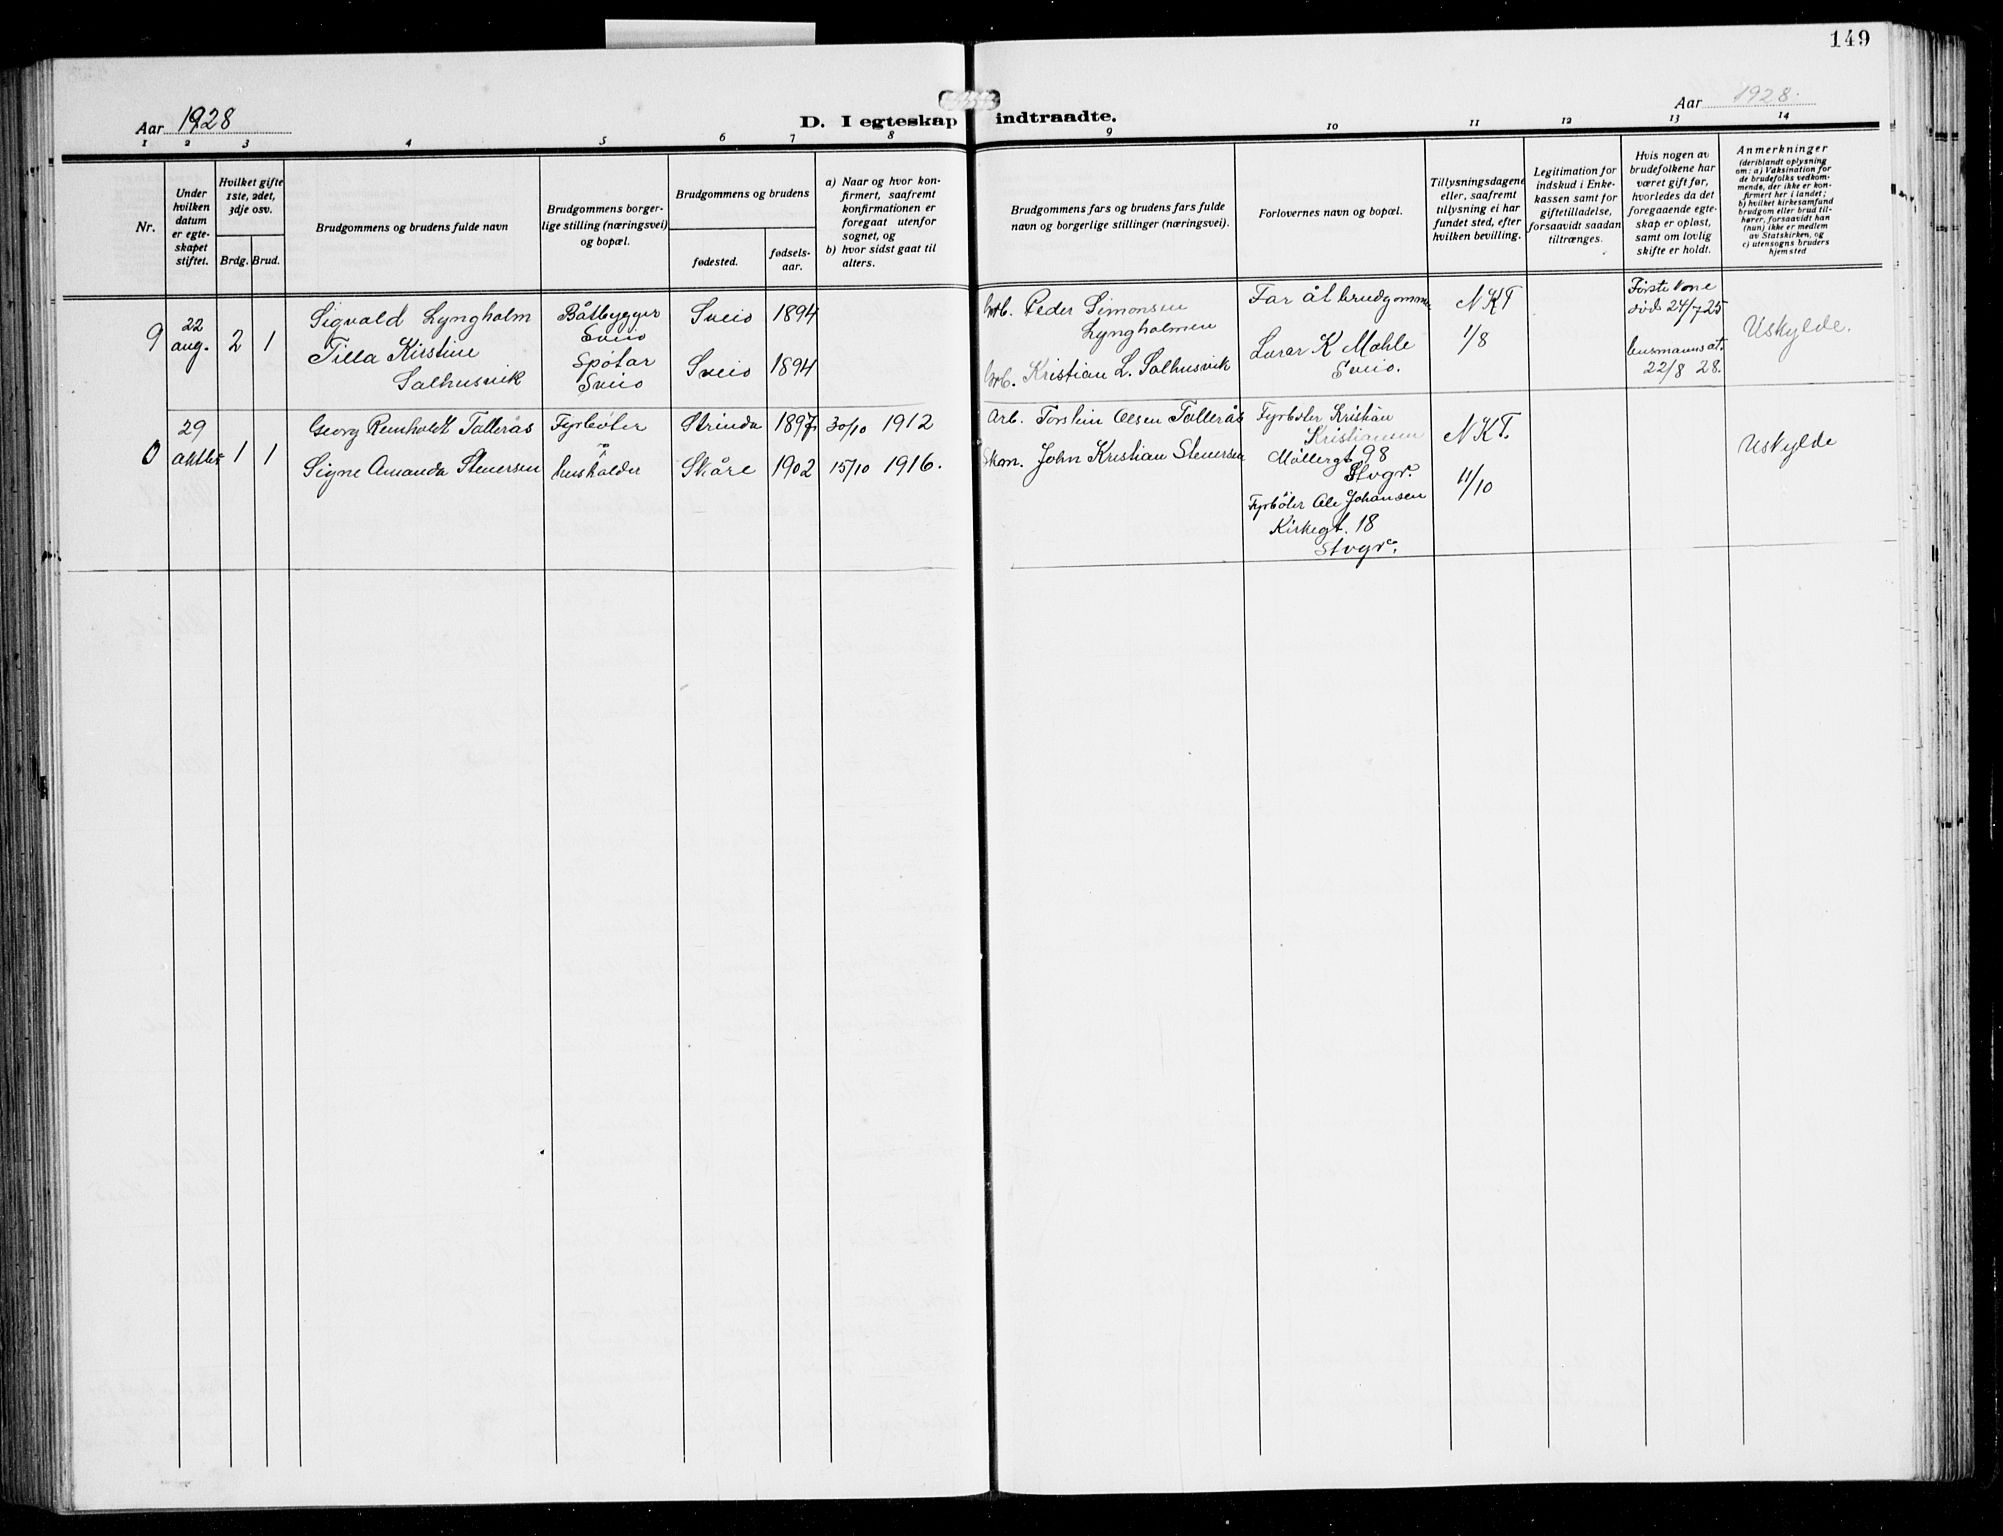 149
Aar 1928
Aar 1928.
D. I egteskap indtraadte.
1 2 3 4 5 6 7 8 9 10 11 12 13 14
Nr.
Under
hvilken
datum
er egte-
skapet
stiftet.
Hvilket gifte
1ste, 2det,
3dje osv.
Brdg. Brud.
Brudgommens og brudens fulde navn
Brudgommens borger-
lige stilling (næringsvei)
og bopæl.
Brudgommens og brudens
fødested.
fødsels-
aar.
a) Naar og hvor kon-
firmert, saafremt
konfirmationen er
foregaat utenfor
sognet, og
b) hvor sidst gaat til
alters.
Brudgommens fars og brudens fars fulde
navn og borgerlige stillinger (næringsvei).
Forlovernes navn og bopæl.
Tillysningsdagene
eller, saafremt
tillysning ei har
fundet sted, efter
hvilken bevilling.
Legitimation for
indskud i Enke-
kassen samt for
giftetilladelse,
forsaavidt saadan
tiltrænges.
Hvis nogen av
brudefolkene har
været gift før,
hvorledes da det
foregaaende egte-
skap er opløst,
samt om lovlig
skifte er holdt.
Anmerkninger
(deriblandt oplysning
om: a) Vaksination for
de brudefolks vedkom-
mende, der ikke er kon-
firmert her i landet;
b) hvilket kirkesamfund
brudgom eller brud til-
hører, forsaavidt han
(hun) ikke er medlem
av Statskirken, og
c) utensogns bruders
hjemsted
9
22
aug.
2 1
Sigvald Lyngholm
Tilla Kirstine
Salhusvik
Båtbygger
Sveio
Sveio
Sveio 1894
Sveio 1894
Peder Simonsen
Lyngholmen
Kristian L. Salhusvik
Far åt brudgommen
K Mæhle
Sveio.
NKT
1/8
Første kone
død 24/7 25
22/8 28.
Uskylde.
0
29
1 1
Georg Reinholdt Tallerås
Signe Amanda Stenersen
Fyrbøter
husholder
Strinda 1897
Skåre 1902
30/10 1912
15/10 1916.
Arb. Torstein Olsen Tallerås
Skom. John Kristian Stenersen
Fyrbøter Kristian
Kristiansen
Møllergt 98
Stvgr.
Fyrbøter Ole Johansen
Kirkegt. 18
Stvgr.
NKT.
11/10
Uskylde